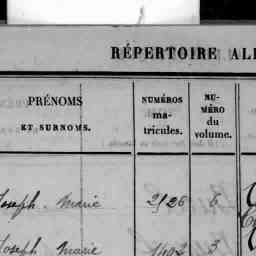 RÉPERTOIRE AL
PRÉNOMS
ET SURNOMS.
NUMÉROS
ma-
tricules.
NU-
MÉRO
du
volume.
Joseph Marie 2126 6
Joseph Marie 3